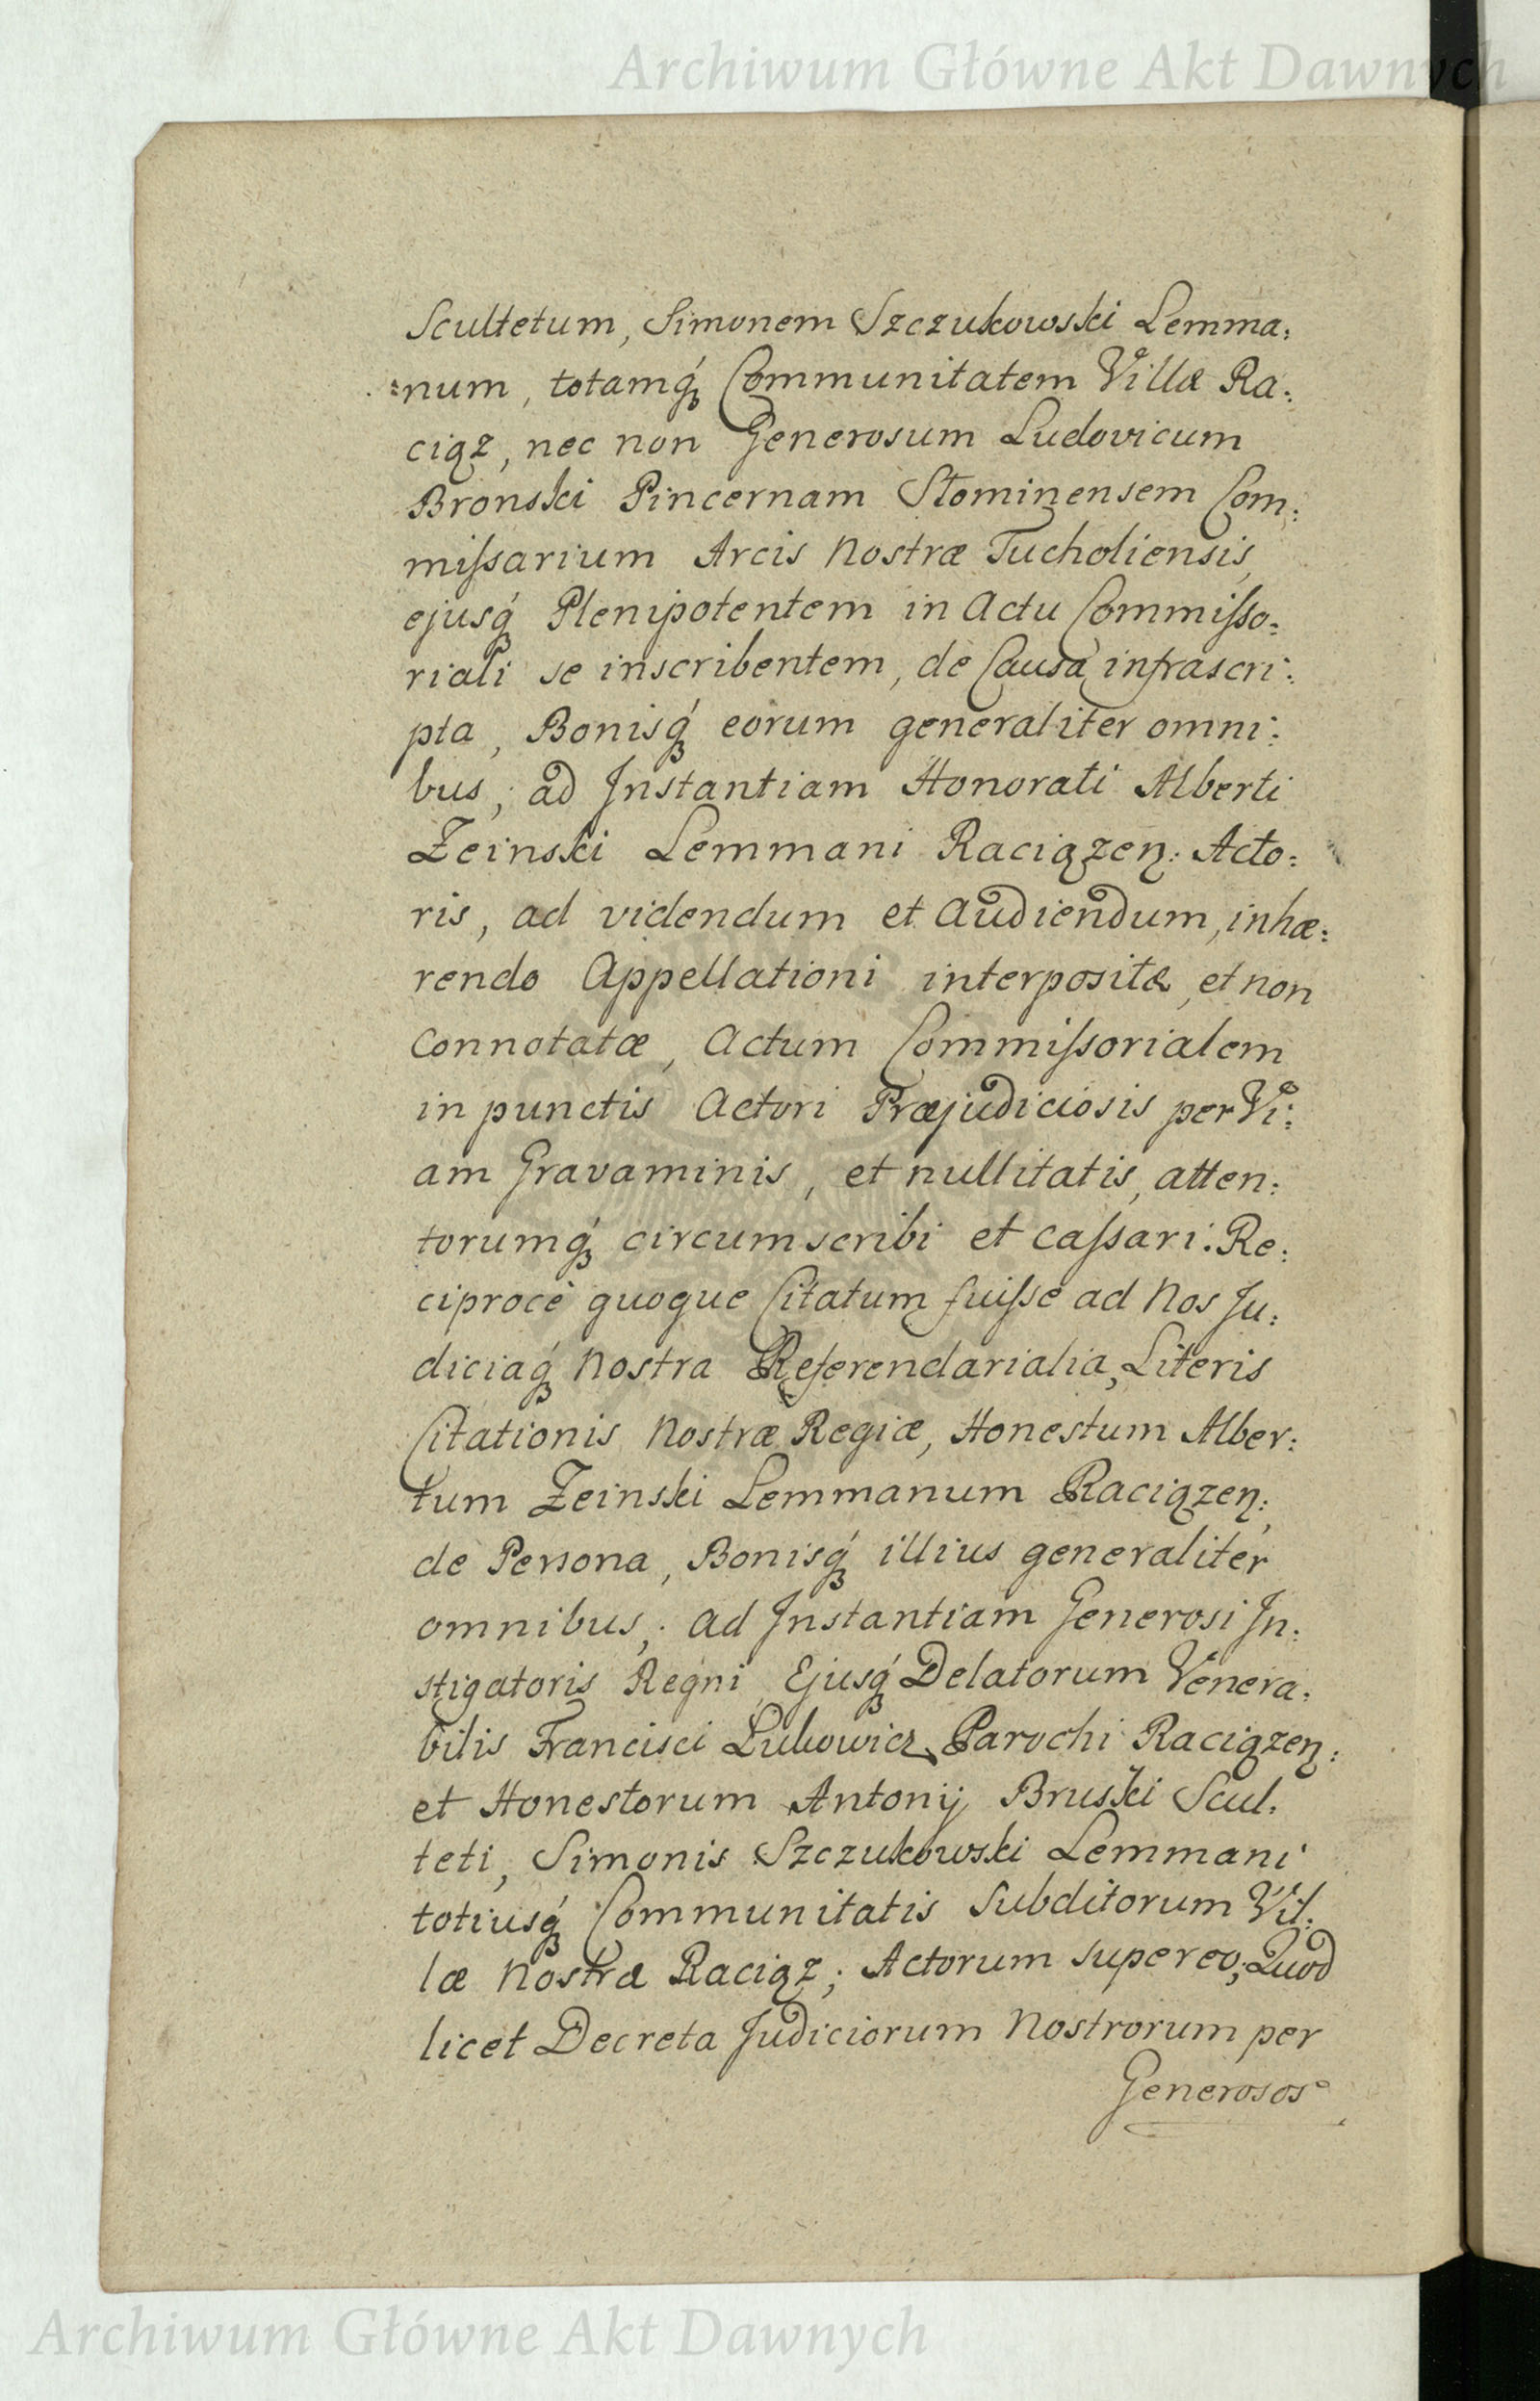 Archiwum Główne Akt Dawnych
Scultetum, Simonem Szczukowski Lemma:
:num, totamq́ꝫ Communitatem Villæ Ra:
ciąz, nec non Generosum Ludovicum
Bronski Pincernam Słominensem Com:
miſsarium Arcis Nostræ Tucholiensis,
ejusq́ꝫ Plenipotentem in Actu Commiſso:
riali se inscribentem, de Causa infrascri:
pta, Bonisq́ꝫ eorum generaliter omni:
bus, ad Instantiam Honorati Alberti
Zeinski Lemmani Raciązen: Acto:
ris, ad videndum et Audiendum, inhæ:
rendo Appellationi interpositæ, et non
Connotatæ, Actum Commiſsorialem
in punctis Actori Præjudiciosis per Vi:
am Gravaminis, et nullitatis, atten:
torumq́ꝫ circumscribi et caſsari. Re:
ciprocè quoque Citatum fuiſse ad Nos Ju:
diciaq́ꝫ Nostra Referendarialia, Literis
Citationis Nostræ Regiæ, Honestum Alber:
tum Zeinski Lemmanum Raciązen:,
de Persona, Bonisq́ꝫ illius generaliter
omnibus, ad Instantiam Generosi In:
stigatoris Regni, Ejusq́ꝫ Delatorum Venera:
bilis Francisci Lukowicz Parochi Raciązen:
et Honestorum Antonij Bruski Scul:
teti, Simonis Szczukowski Lemmani
totiusq́ꝫ Communitatis Subditorum Vil:
læ Nostræ Raciąz; Actorum super eo; Quod
licet Decreta Judiciorum Nostrorum per
Generosos
Archiwum Główne Akt Dawnych